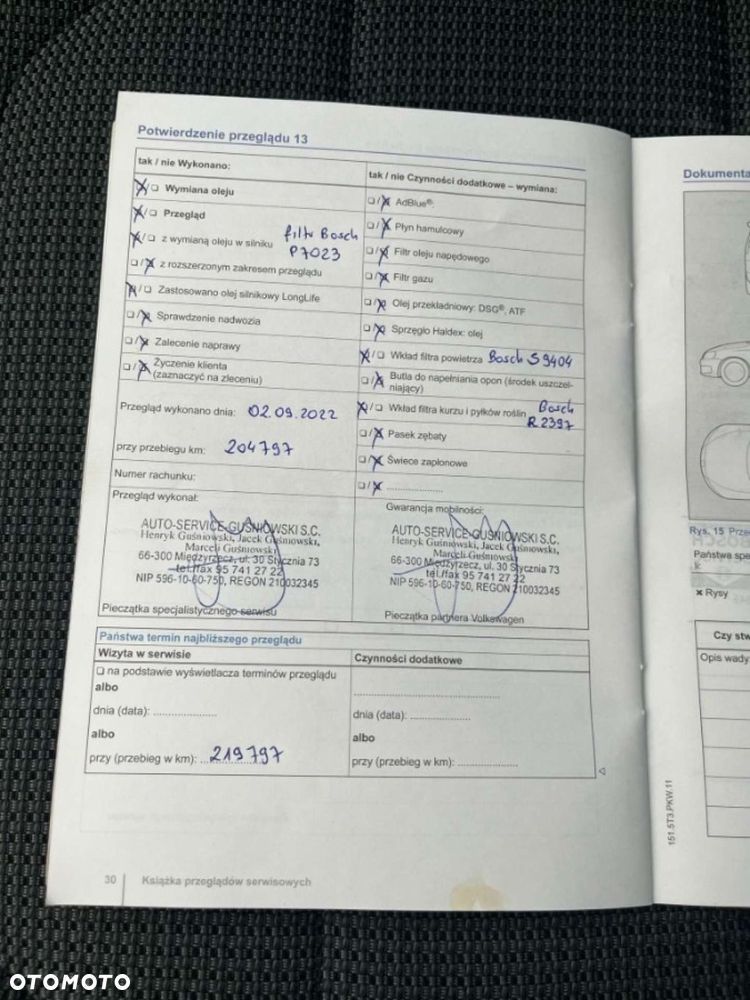 Potwierdzenie przeglądu 13
tak / nie Wykonano:
☒/☐ Wymiana oleju
☒/☐ Przegląd
☒/☐ z wymianą oleju w silniku filtr Bosch P7023
☐/☒ z rozszerzonym zakresem przeglądu
☒/☐ Zastosowano olej silnikowy LongLife
☐/☒ Sprawdzenie nadwozia
☐/☒ Zalecenie naprawy
☐/☒ Życzenie klienta
(zaznaczyć na zleceniu)
Przegląd wykonano dnia: 02.09.2022
przy przebiegu km: 204797
Numer rachunku:
Przegląd wykonał:
AUTO-SERVICE GUŚNIOWSKI S.C.
Henryk Guśniowski, Jacek Guśniowski,
Marceli Guśniowski
66-300 Międzyrzecz, ul. 30 Stycznia 73
tel./fax 95 741 27 22
NIP 596-10-60-750, REGON 210032345
Pieczątka specjalistycznego serwisu
tak / nie Czynności dodatkowe – wymiana:
☐/☒ AdBlue®:
☐/☒ Płyn hamulcowy
☐/☒ Filtr oleju napędowego
☐/☒ Filtr gazu
☐/☒ Olej przekładniowy: DSG®, ATF
☐/☒ Sprzęgło Haldex: olej
☒/☐ Wkład filtra powietrza Bosch S9404
☐/☒ Butla do napełniania opon (środek uszczel-
niający)
☒/☐ Wkład filtra kurzu i pyłków roślin Bosch R2397
☐/☒ Pasek zębaty
☐/☒ Świece zapłonowe
☐/☒ ....................
Gwarancja mobilności:
AUTO-SERVICE GUŚNIOWSKI S.C.
Henryk Guśniowski, Jacek Guśniowski,
Marceli Guśniowski
66-300 Międzyrzecz, ul. 30 Stycznia 73
tel./fax 95 741 27 22
NIP 596-10-60-750, REGON 210032345
Pieczątka partnera Volkswagen
Państwa termin najbliższego przeglądu
Wizyta w serwisie
☐ na podstawie wyświetlacza terminów przeglądu
albo
dnia (data): ....................
albo
przy (przebieg w km): 219797
Czynności dodatkowe
....................
dnia (data): ....................
albo
przy (przebieg w km): ....................
30 Książka przeglądów serwisowych
Dokumenta
Rys. 15 Prze
Państwa spe
k:
× Rysy
Czy stw
Opis wady
151.5T3.PKW.11
OTOMOTO